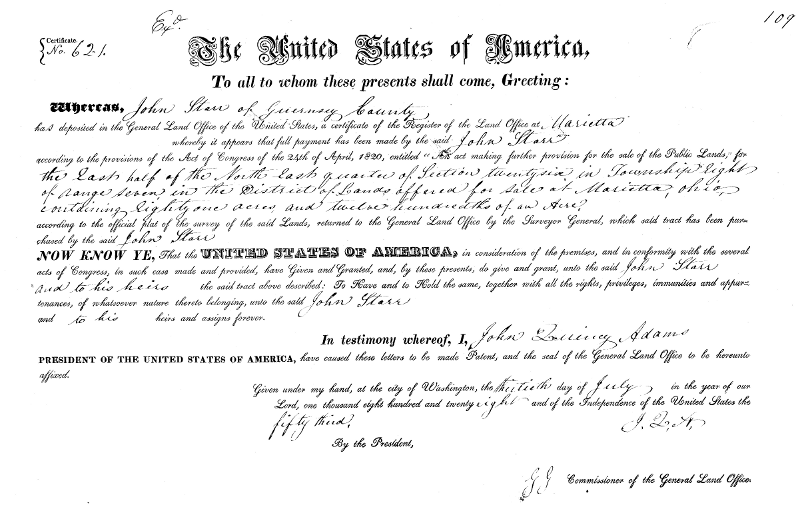 Exd.
109
Certificate
No. 621.
The United States of America,
To all to whom these presents shall come, Greeting:
Whereas, John Starr of Guernsey County
has deposited in the General Land Office of the United States, a certificate of the Register of the Land Office at Marietta
whereby it appears that full payment has been made by the said John Starr
according to the provisions of the Act of Congress of the 24th of April, 1820, entitled "An act making further provision for the sale of the Public Lands," for
the East half of the North East quarter of Section twenty six in Township Eight
of Range seven, in the District of Lands offered for sale at Marietta, Ohio,
containing Eighty one acres and twelve hundredths of an Acre,
according to the official plat of the survey of the said Lands, returned to the General Land Office by the Surveyor General, which said tract has been pur-
chased by the said John Starr
NOW KNOW YE, That the UNITED STATES OF AMERICA, in consideration of the premises, and in conformity with the several
acts of Congress, in such case made and provided, have Given and Granted, and, by these presents, do give and grant, unto the said John Starr
and to his heirs the said tract above described: To Have and to Hold the same, together with all the rights, privileges, immunities and appur-
tenances, of whatsoever nature thereto belonging, unto the said John Starr
and to his heirs and assigns forever.
In testimony whereof, I, John Quincy Adams
PRESIDENT OF THE UNITED STATES OF AMERICA, have caused these letters to be made Patent, and the seal of the General Land Office to be hereunto
affixed.
Given under my hand, at the city of Washington, the thirtieth day of July in the year of our
Lord, one thousand eight hundred and twenty eight and of the Independence of the United States the
fifty third. J. Q. A
By the President,
GG Commissioner of the General Land Office.